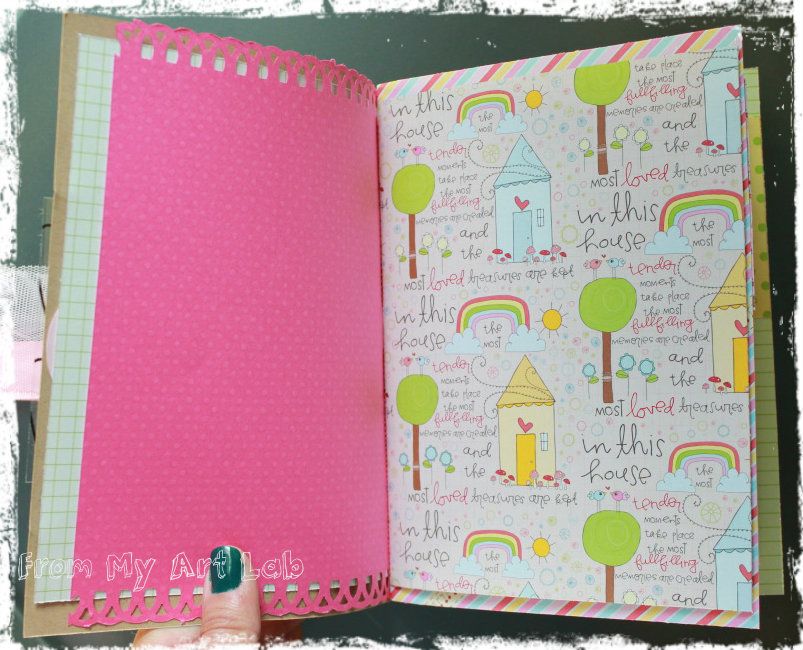 in this
house
the
most
tender
moments
take place
the most
fullfilling
memories are created
and
the
most loved treasures are kept
in this
house
the
most
tender
moments
take place
the most
fullfilling
memories are created
and
the
most loved treasures are kept
in this
house
the
most
tender
take place
the most
fullfilling
memories are created
and
the
most loved treasures
in this
house
the
most
tender
moments
take place
the most
fullfilling
memories are created
and
the
most loved treasures
in this
house
the
most
tender
moments
take place
the most
fullfilling
memories are created
and
the
From My Art Lab